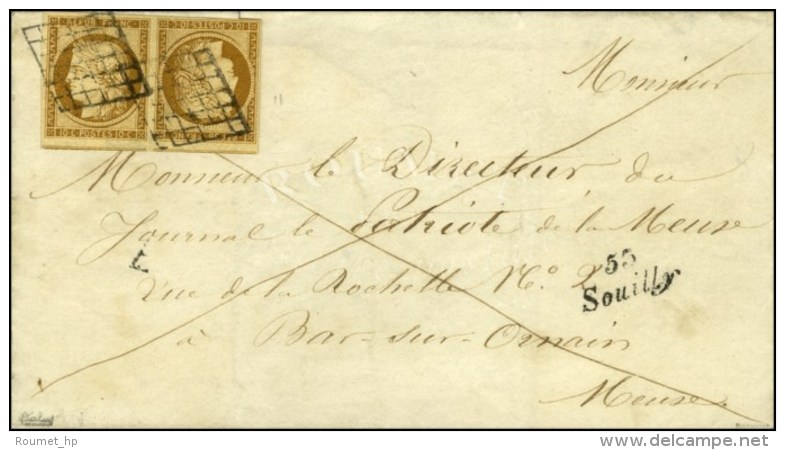 REPUB FRANC
10 C POSTES 10 C
10 C POSTES 10 C
Monsieur
Monsieur le Directeur du
Journal le Patriote de la Meuse
rue de la Rochelle No. 2
à Bar-sur-Ornain
Meuse.
55
Souilly
Roumet_hp
www.delcampe.net